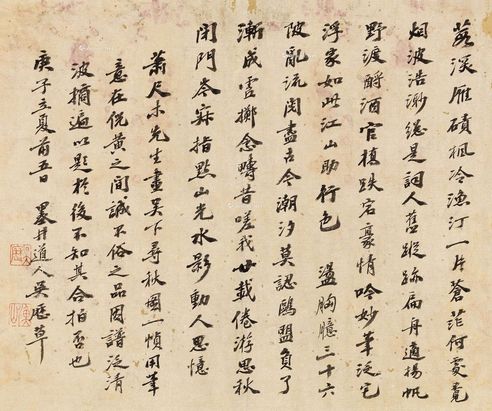 蘆深雁磧楓冷漁汀一片蒼茫何處覓
烟波浩渺總是詞人舊蹤跡扁舟適揚帆
野渡酹酒官橋跌宕豪情吟妙筆泛宅
浮家如此江山助行色 盪胸臆三十六
陂亂流閱盡古今潮汐莫認鷗盟負了
漸成雪擲念疇昔嗟我廿載倦游思秋
閉門岑寂指點山光水影動人思憶
蕭尺木先生畫吳下尋秋圖一幀用筆
意在倪黃之間誠不俗之品因譜泛清
波摘遍以題於後不知其合拍否也
庚子立夏前五日 墨井道人吳歷草